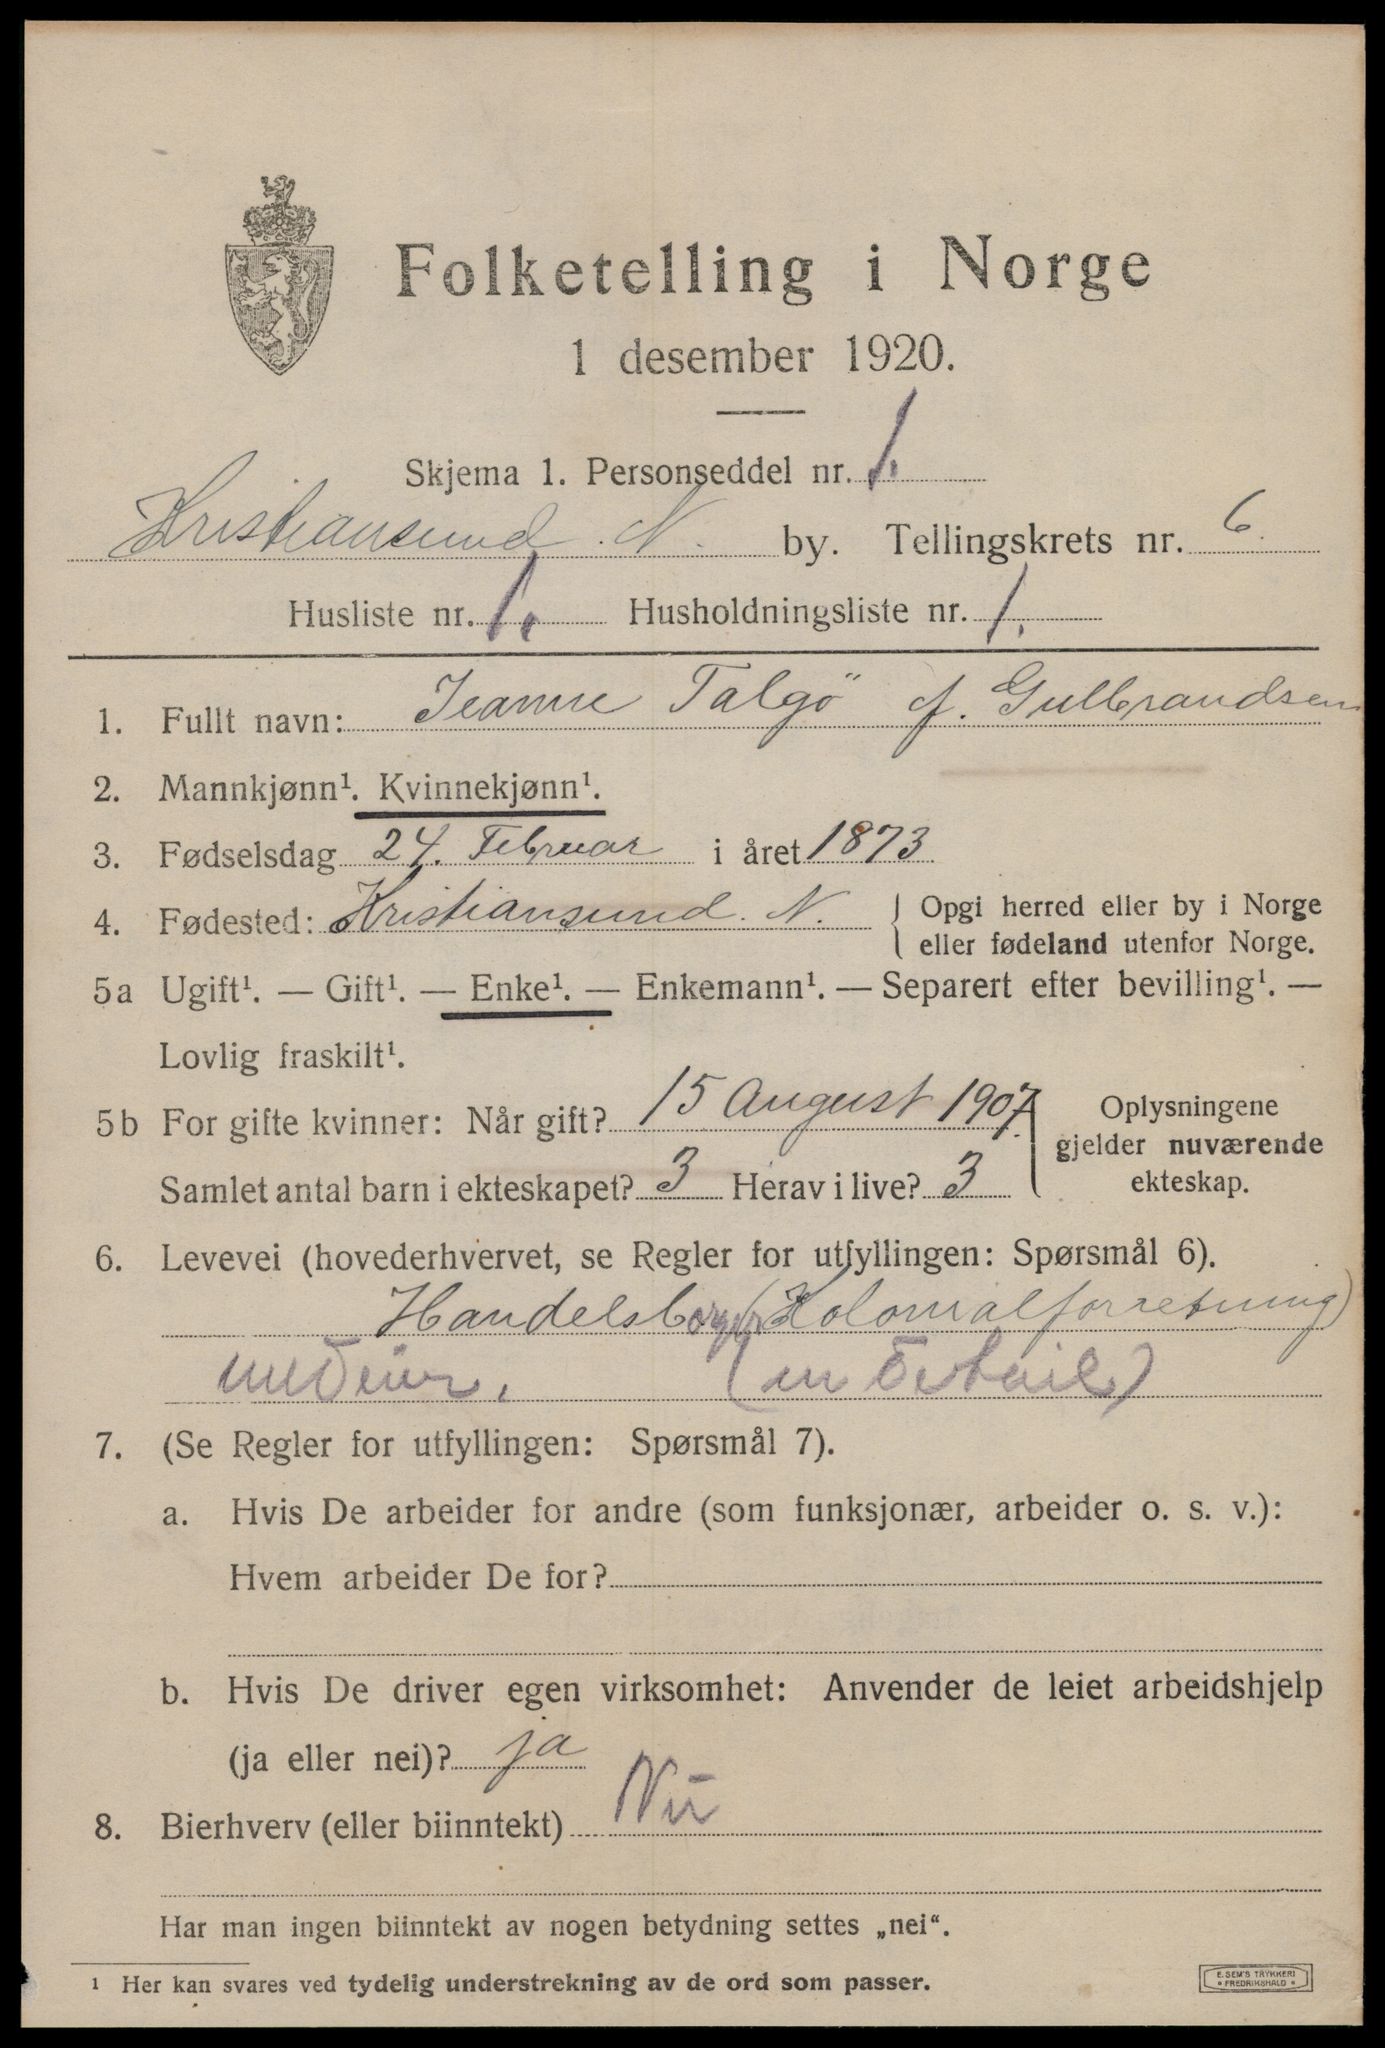 Folketelling i Norge
1 desember 1920.
Skjema 1. Personseddel nr. 1.
Kristiansund N. by. Tellingskrets nr. 6.
Husliste nr. 1. Husholdningsliste nr. 1.
1. Fullt navn: Jeanne Talgö f. Gulbrandsen
2. Mannkjønn¹. Kvinnekjønn¹.
3. Fødselsdag 24. Februar i året 1873
4. Fødested: Kristiansund. N. { Opgi herred eller by i Norge
eller fødeland utenfor Norge.
5a Ugift¹. — Gift¹. — Enke¹. — Enkemann¹. — Separert efter bevilling¹. —
Lovlig fraskilt¹.
5b For gifte kvinner: Når gift? 15 August 1907. Oplysningene
gjelder nuværende
Samlet antal barn i ekteskapet? 3 Herav i live? 3 ekteskap.
6. Levevei (hovederhvervet, se Regler for utfyllingen: Spørsmål 6).
Handelsborger (Kolonialforretning)
(en detail)
7. (Se Regler for utfyllingen: Spørsmål 7).
a. Hvis De arbeider for andre (som funksjonær, arbeider o. s. v.):
Hvem arbeider De for?
b. Hvis De driver egen virksomhet: Anvender de leiet arbeidshjelp
(ja eller nei)? ja
8. Bierhverv (eller biinntekt) Nei
Har man ingen biinntekt av nogen betydning settes „nei“.
¹ Her kan svares ved tydelig understrekning av de ord som passer.
E. SEM'S TRYKKERI
• FREDRIKSHALD •